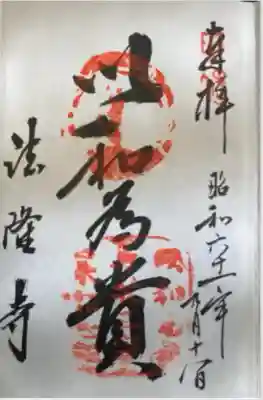 奉拝
昭和六十一年
月十八日
以和為貴
法隆寺